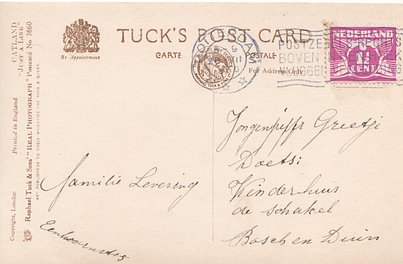 TUCK'S POST CARD
CARTE POSTALE
For Address Only.
By Appointment
CATLAND
"JUST A LINE"
Raphael Tuck & Sons' "REAL PHOTOGRAPH" Postcard No. 3860
Copyright, London. Printed in England
POSTZE
BOVEN
NEDERLAND
1½
CENT
Familie Levering
Greetje
Doets
Kinderhuis
de schakel
Bosch en Duin